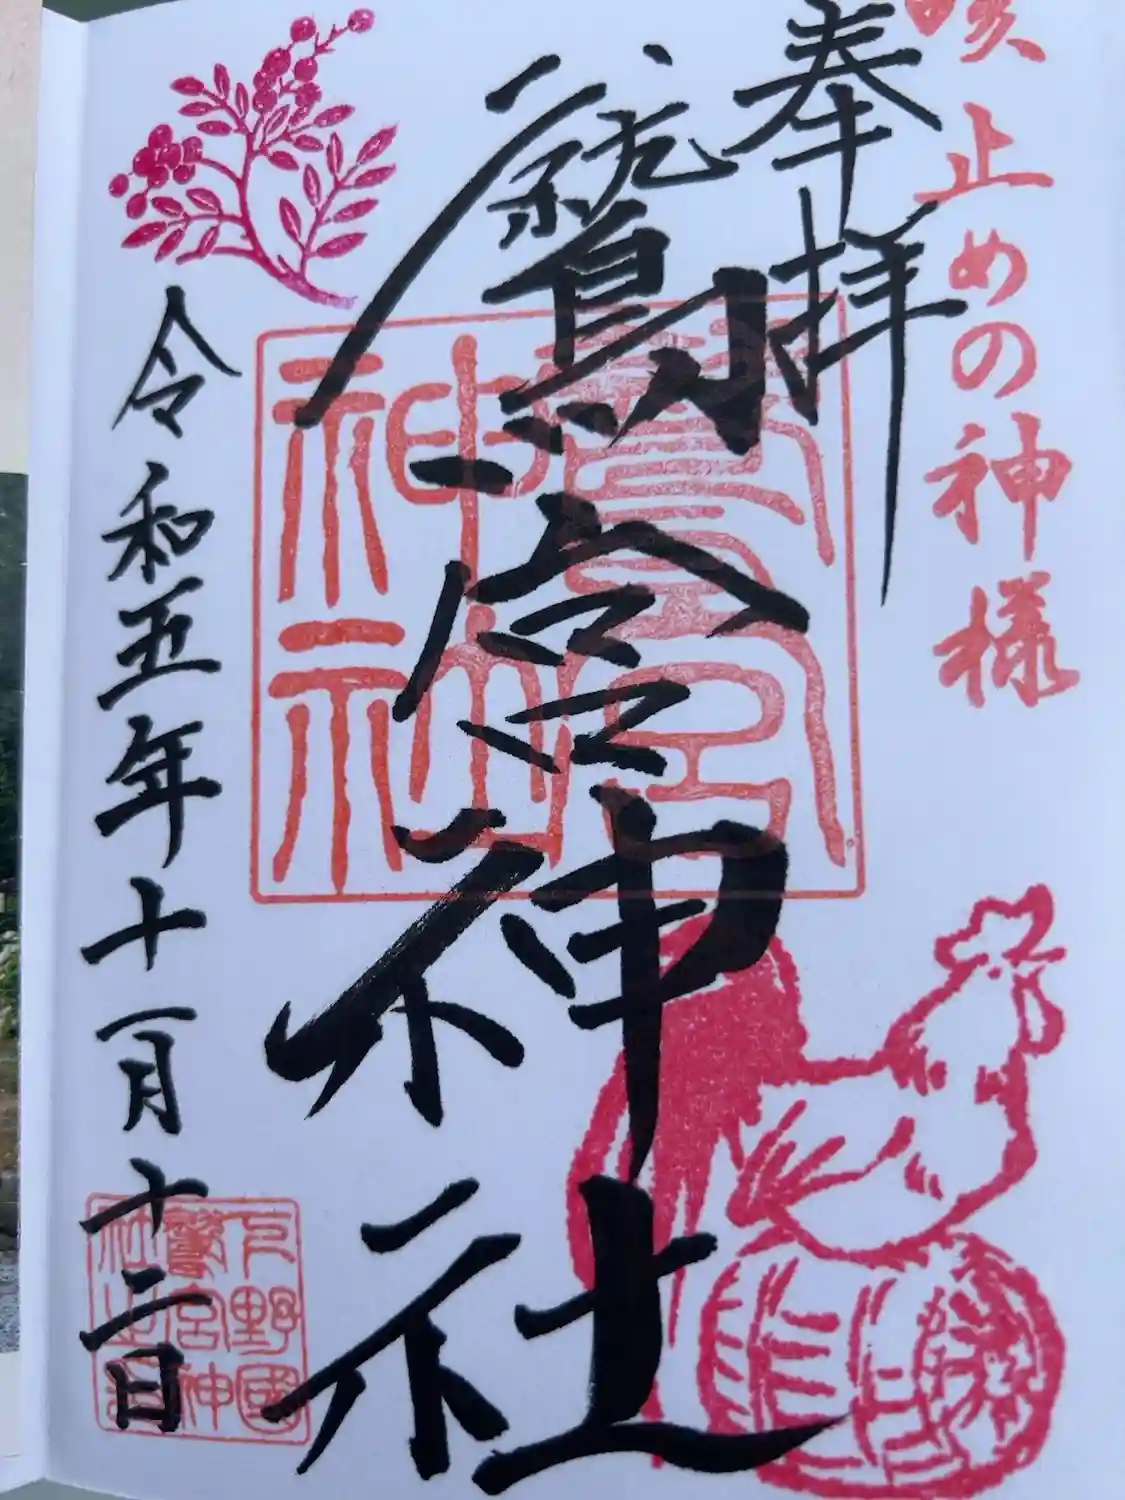 咳止めの神様
奉拝
鷲宮神社
鷲宮
神社
令和五年十一月十二日
下野國
鷲宮神
社之印